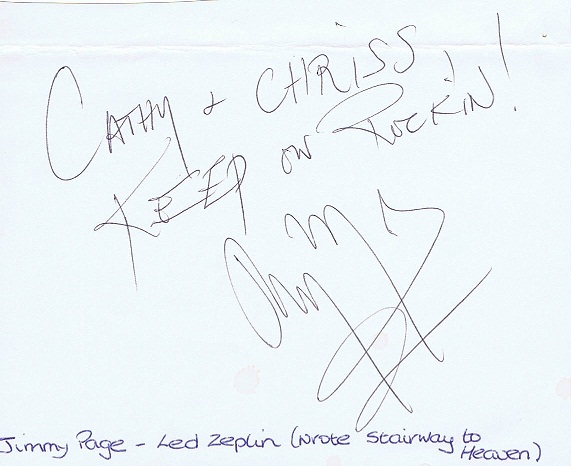 CATHY + CHRISS,
KEEP ON ROCKIN!
Jimmy Page - Led Zeplin (wrote Stairway to
Heaven)